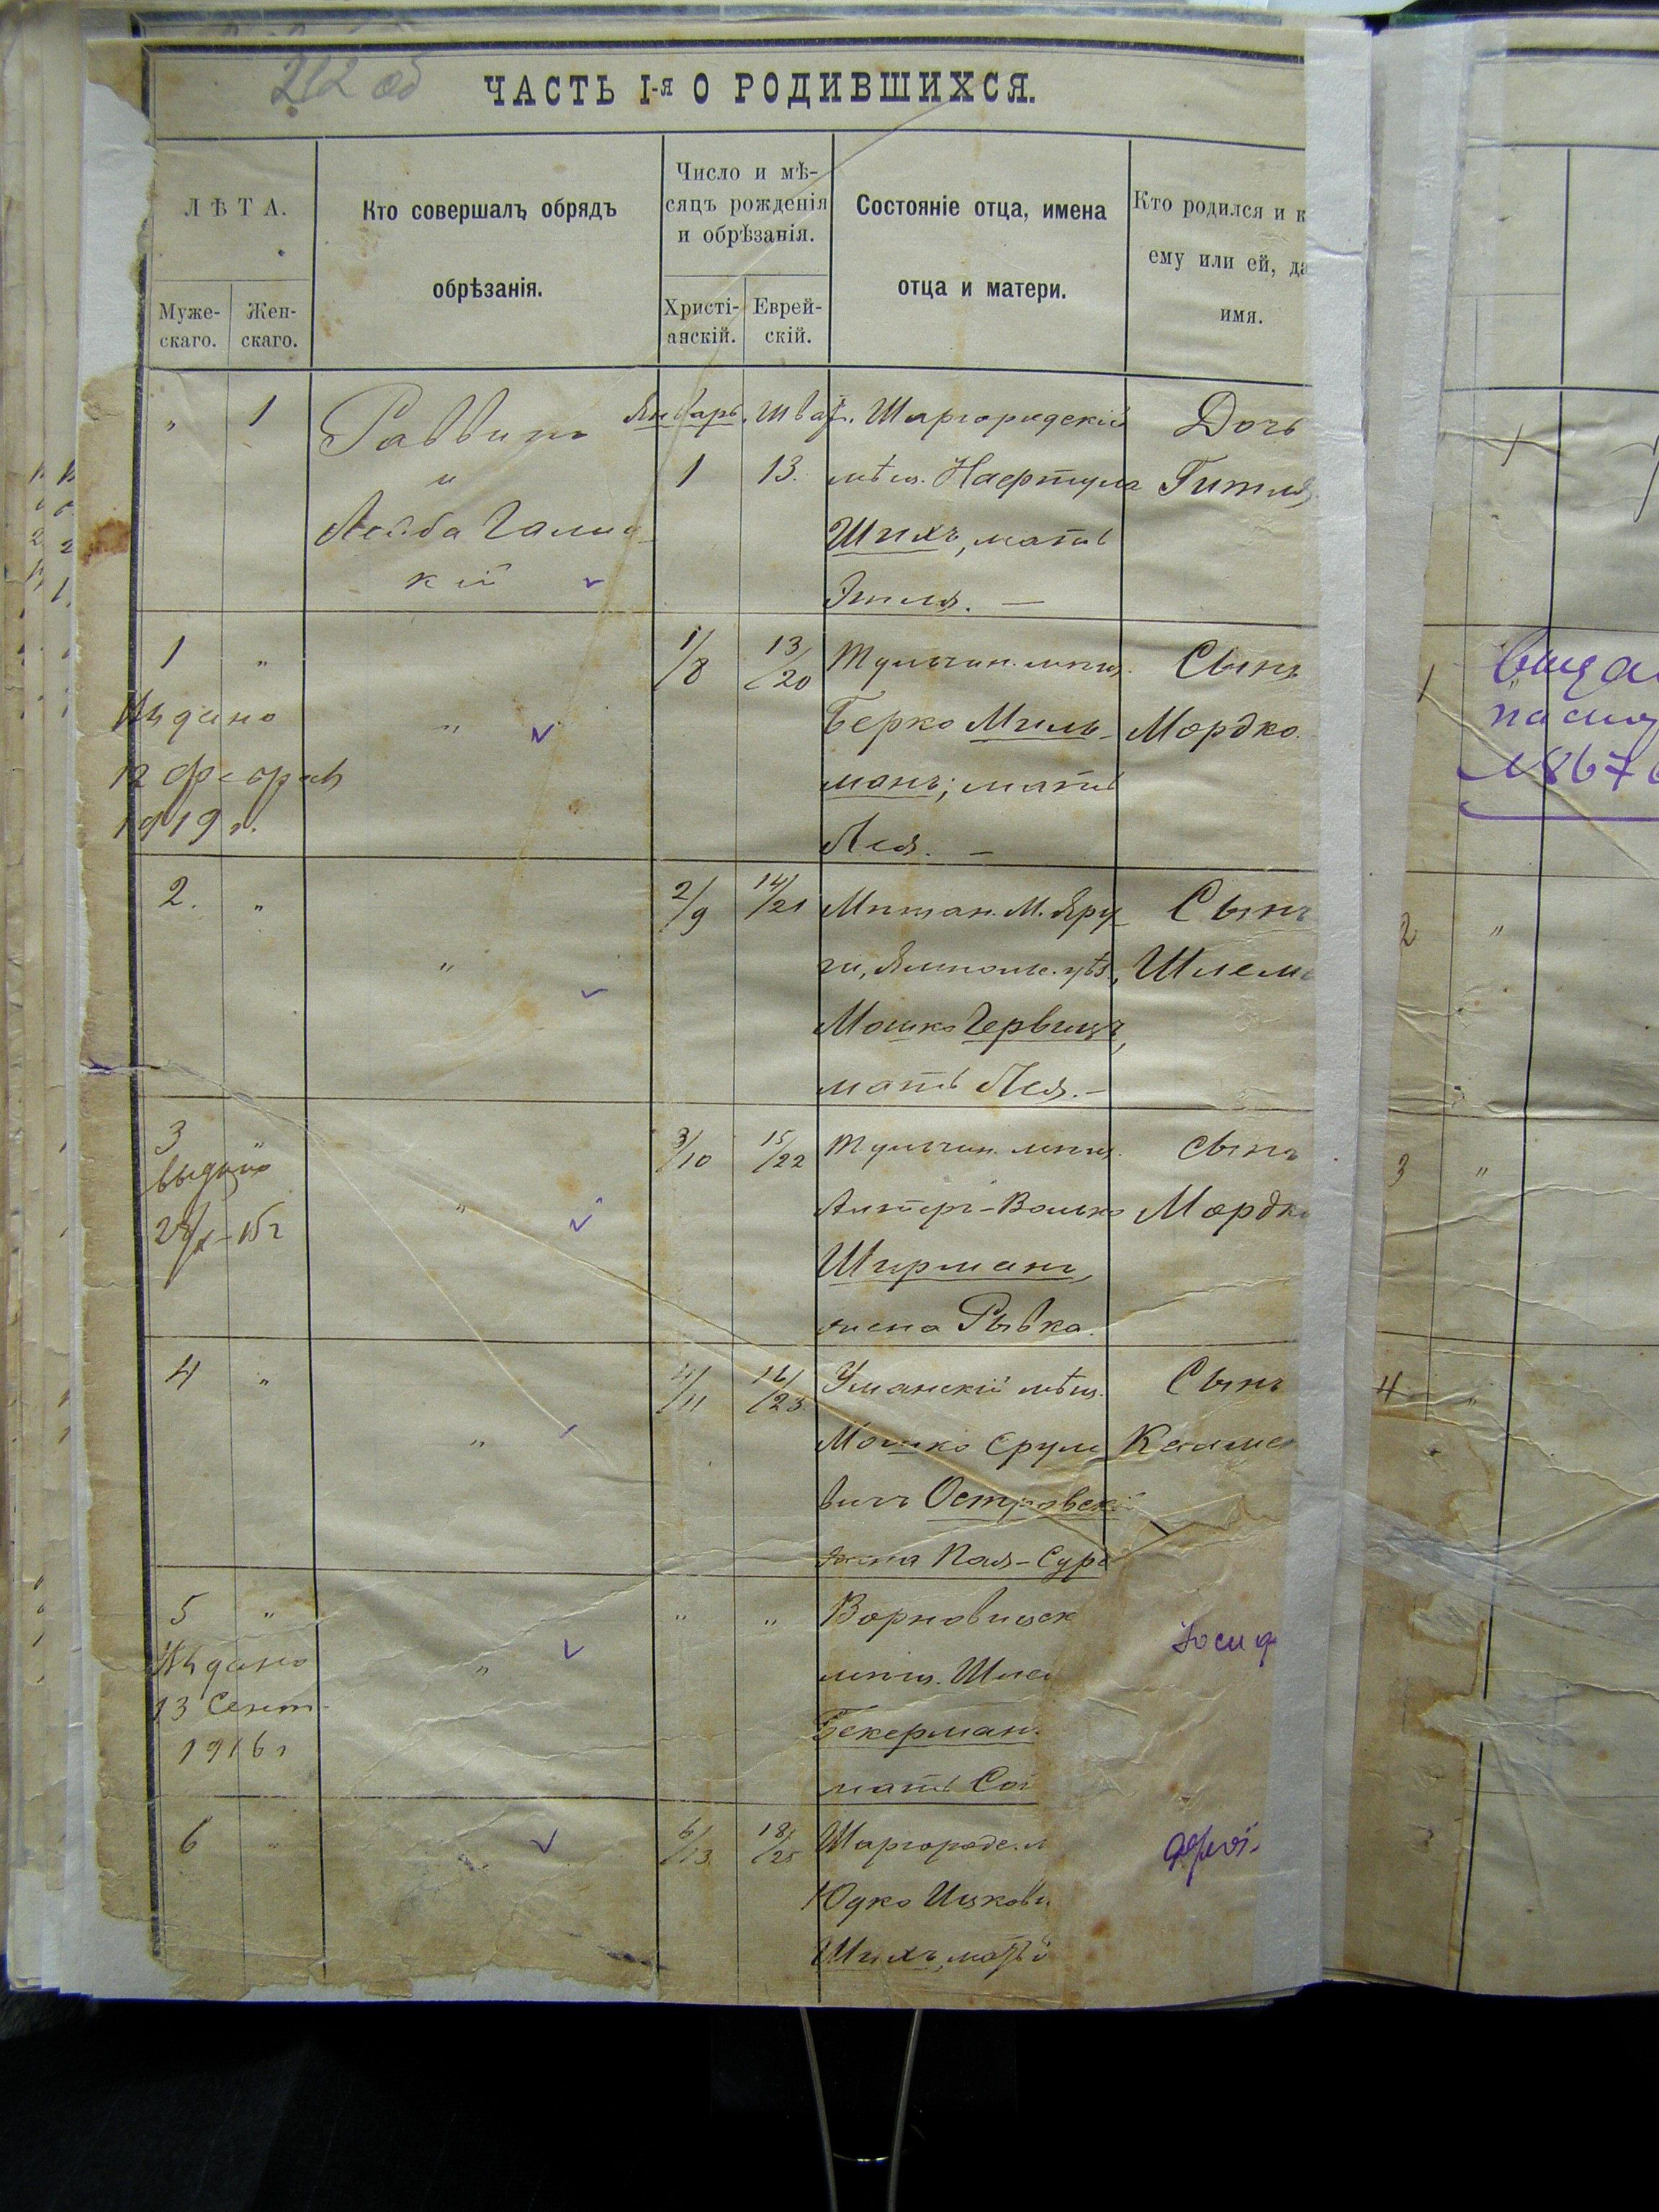 212 об
ЧАСТЬ I-я О РОДИВШИХСЯ.
ЛѢТА.
Муже-
скаго.
Жен-
скаго.
Кто совершалъ обрядъ
обрѣзанія.
Число и мѣ-
сяцъ рожденія
и обрѣзанія.
Христі-
анскій.
Еврей-
скій.
Состояніе отца, имена
отца и матери.
Кто родился и к
ему или ей, да
имя.
" 1
Раввинъ
и
Лейба Галиц
кій
Январь. Шват.
1 13.
Шаргородскій
мѣщ. Нафтула
Шихъ, мать
Этля. —
Дочь
Гитля
1 "
Выдано
12 февраль
1919 г.
"
1/8 13/20
Тульчин. мѣщ.
Берко Миль-
манъ; мать
Лея. —
Сынъ
Мордко.
2. "
"
2/9 14/21
Мѣщан. М. Яру
ги, Ямполь. уѣз,
Мошко Гервицъ,
мать Лея. —
Сынъ
Шлем
3 "
выдано
15 г
"
3/10 15/22
Тульчин. мѣщ.
Алтеръ-Волько
Ширманъ,
жена Рывка.
Сынъ
Мордк
4 "
"
4/11 16/23
Уманскій мѣщ.
Мошко Срул
вичъ Островскі
жена Пая-Сура
Сынъ
5 "
Выдано
13 Сент.
1916 г
"
" "
мѣщ. Шле
Бекерман.
мать
Іосиф
6 "
6/13 18/25
Шаргородс. м
Юдко Ицкови
Шихъ, мать
1
выда
2 "
3 "
4 "